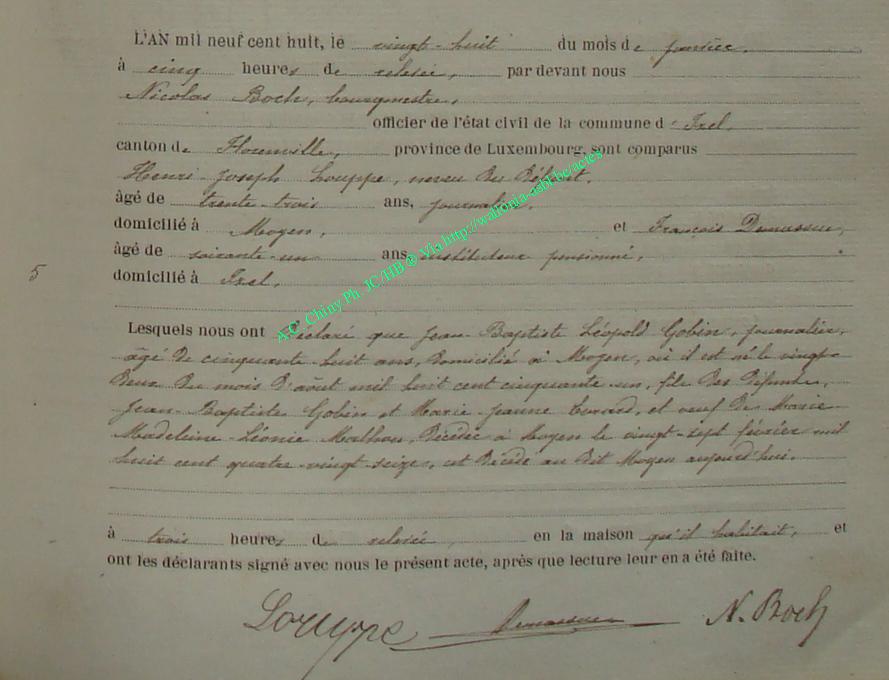 L'AN mil neuf cent huit, le vingt-huit du mois de janvier,
à cinq heures de relevée, par devant nous
Nicolas Boch, bourgmestre,
officier de l'état civil de la commune d'Izel,
canton de Florenville, province de Luxembourg, sont comparus
Henri Joseph Louppe, neveu du défunt,
âgé de trente-trois ans, journalier,
domicilié à Moyen, et François
âgé de soixante-un ans, instituteur pensionné,
5
domicilié à Izel,
Lesquels nous ont déclaré que Jean-Baptiste Léopold Gobin, journalier,
âgé de cinquante huit ans, domicilié à Moyen, où il est né le vingt-
deux du mois d'août mil huit cent cinquante-un, fils des défunts,
Jean-Baptiste Gobin et Marie-Jeanne et veuf de Marie
Madeleine-Léonie décédée à Moyen le vingt-sept février mil
huit cent quatre-vingt-seize, est décédé au dit Moyen aujourd'hui,
à trois heures de relevée, en la maison qu'il habitait, et
ont les déclarants signé avec nous le présent acte, après que lecture leur en a été faite.
Louppe N. Boch
A.C. Chiny Ph. JC/HB @ Via http://wallonia-asbl.be/actes